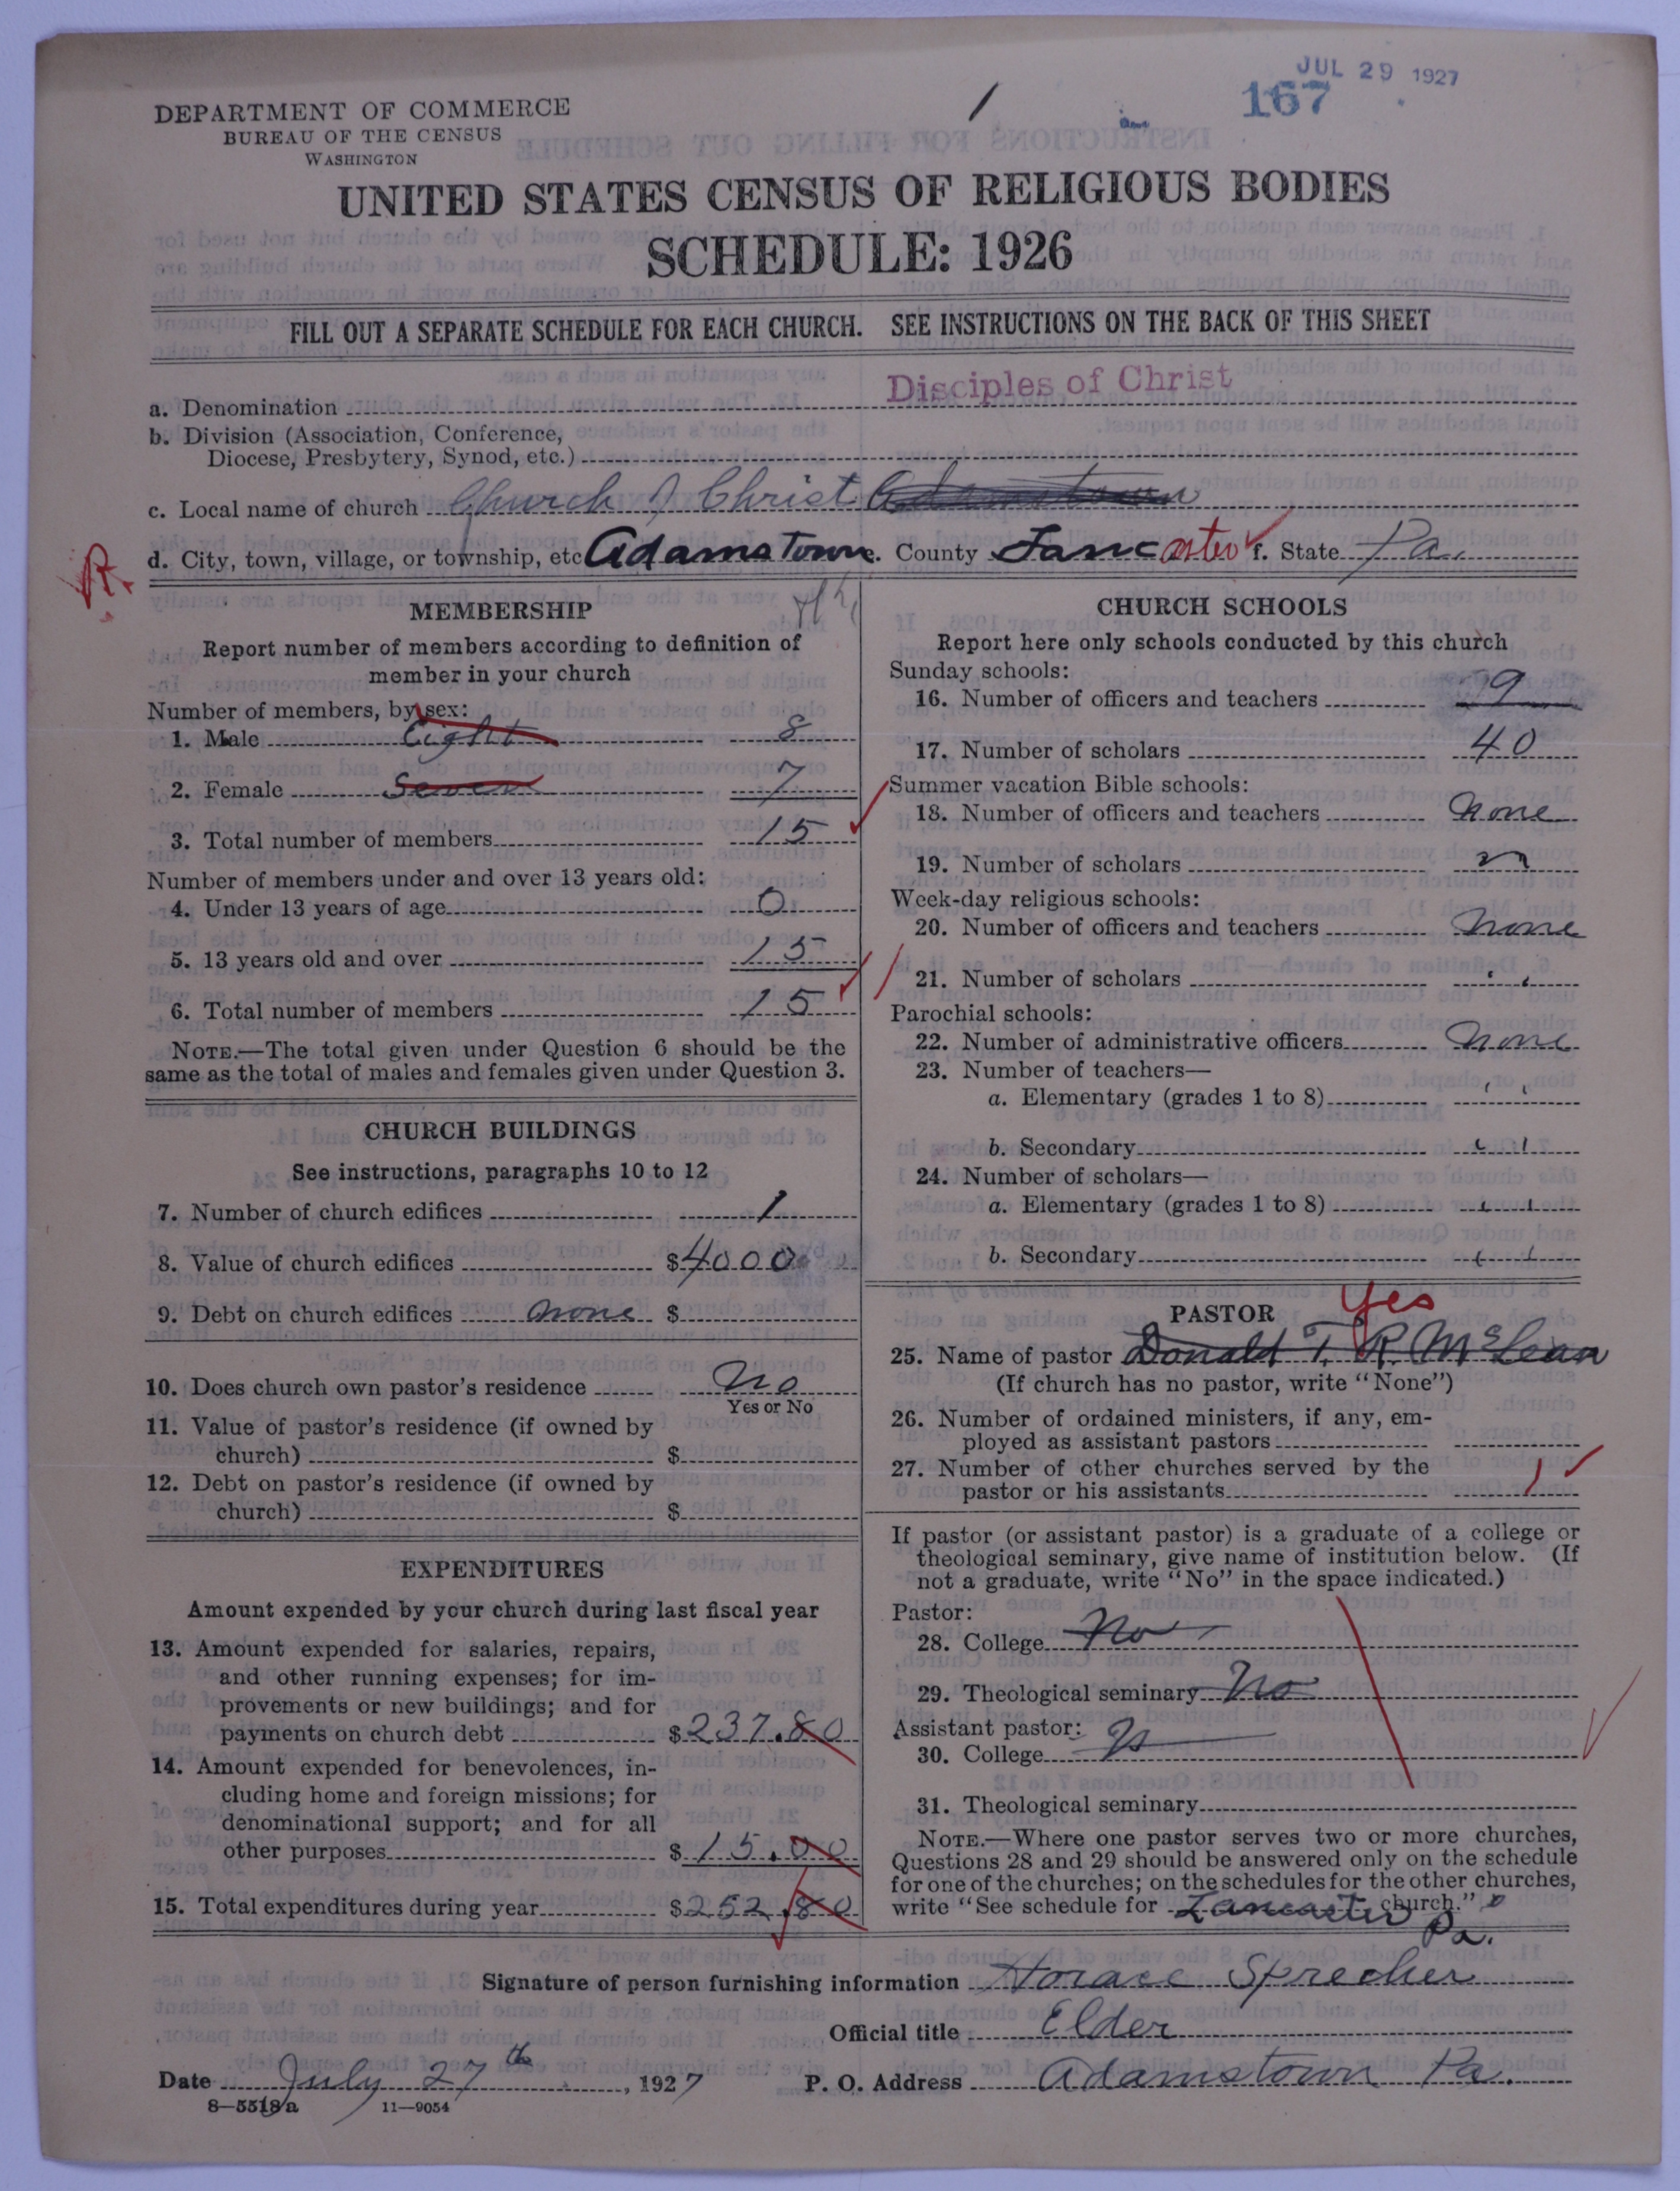 JUL 29 1927
167
1
DEPARTMENT OF COMMERCE
BUREAU OF THE CENSUS
WASHINGTON
UNITED STATES CENSUS OF RELIGIOUS BODIES
SCHEDULE: 1926
FILL OUT A SEPARATE SCHEDULE FOR EACH CHURCH. SEE INSTRUCTIONS ON THE BACK OF THIS SHEET
a. Denomination Disciples of Christ
b. Division (Association, Conference,
Diocese, Presbytery, Synod, etc.)
c. Local name of church Church of Christ Adamstown
d. City, town, village, or township, etc Adamstown e. County Lancaster f. State Pa.
MEMBERSHIP
Report number of members according to definition of
member in your church
Number of members, by sex:
1. Male Eight 8
2. Female Seven 7
3. Total number of members 15
Number of members under and over 13 years old:
4. Under 13 years of age 0
5. 13 years old and over 15
6. Total number of members 15
NOTE.—The total given under Question 6 should be the
same as the total of males and females given under Question 3.
CHURCH BUILDINGS
See instructions, paragraphs 10 to 12
7. Number of church edifices 1
8. Value of church edifices $4000
9. Debt on church edifices none $
10. Does church own pastor's residence No
Yes or No
11. Value of pastor's residence (if owned by
church) $
12. Debt on pastor's residence (if owned by
church) $
EXPENDITURES
Amount expended by your church during last fiscal year
13. Amount expended for salaries, repairs,
and other running expenses; for im-
provements or new buildings; and for
payments on church debt $237.80
14. Amount expended for benevolences, in-
cluding home and foreign missions; for
denominational support; and for all
other purposes $15.00
15. Total expenditures during year $252.80
CHURCH SCHOOLS
Report here only schools conducted by this church
Sunday schools:
16. Number of officers and teachers 9
17. Number of scholars 40
Summer vacation Bible schools:
18. Number of officers and teachers None
19. Number of scholars
Week-day religious schools:
20. Number of officers and teachers None
21. Number of scholars ""
Parochial schools:
22. Number of administrative officers None
23. Number of teachers—
a. Elementary (grades 1 to 8) ""
b. Secondary ""
24. Number of scholars—
a. Elementary (grades 1 to 8) ""
b. Secondary ""
PASTOR Yes
25. Name of pastor Donald T. R. McLean
(If church has no pastor, write "None")
26. Number of ordained ministers, if any, em-
ployed as assistant pastors
27. Number of other churches served by the
pastor or his assistants 1
If pastor (or assistant pastor) is a graduate of a college or
theological seminary, give name of institution below. (If
not a graduate, write "No" in the space indicated.)
Pastor:
28. College No
29. Theological seminary No
Assistant pastor:
30. College
31. Theological seminary
NOTE.—Where one pastor serves two or more churches,
Questions 28 and 29 should be answered only on the schedule
for one of the churches; on the schedules for the other churches,
write "See schedule for Lancaster church."
Pa.
Signature of person furnishing information Horace Sprecher
Official title Elder
Date July 27th, 1927 P. O. Address Adamstown Pa.
8—5518a 11—9054